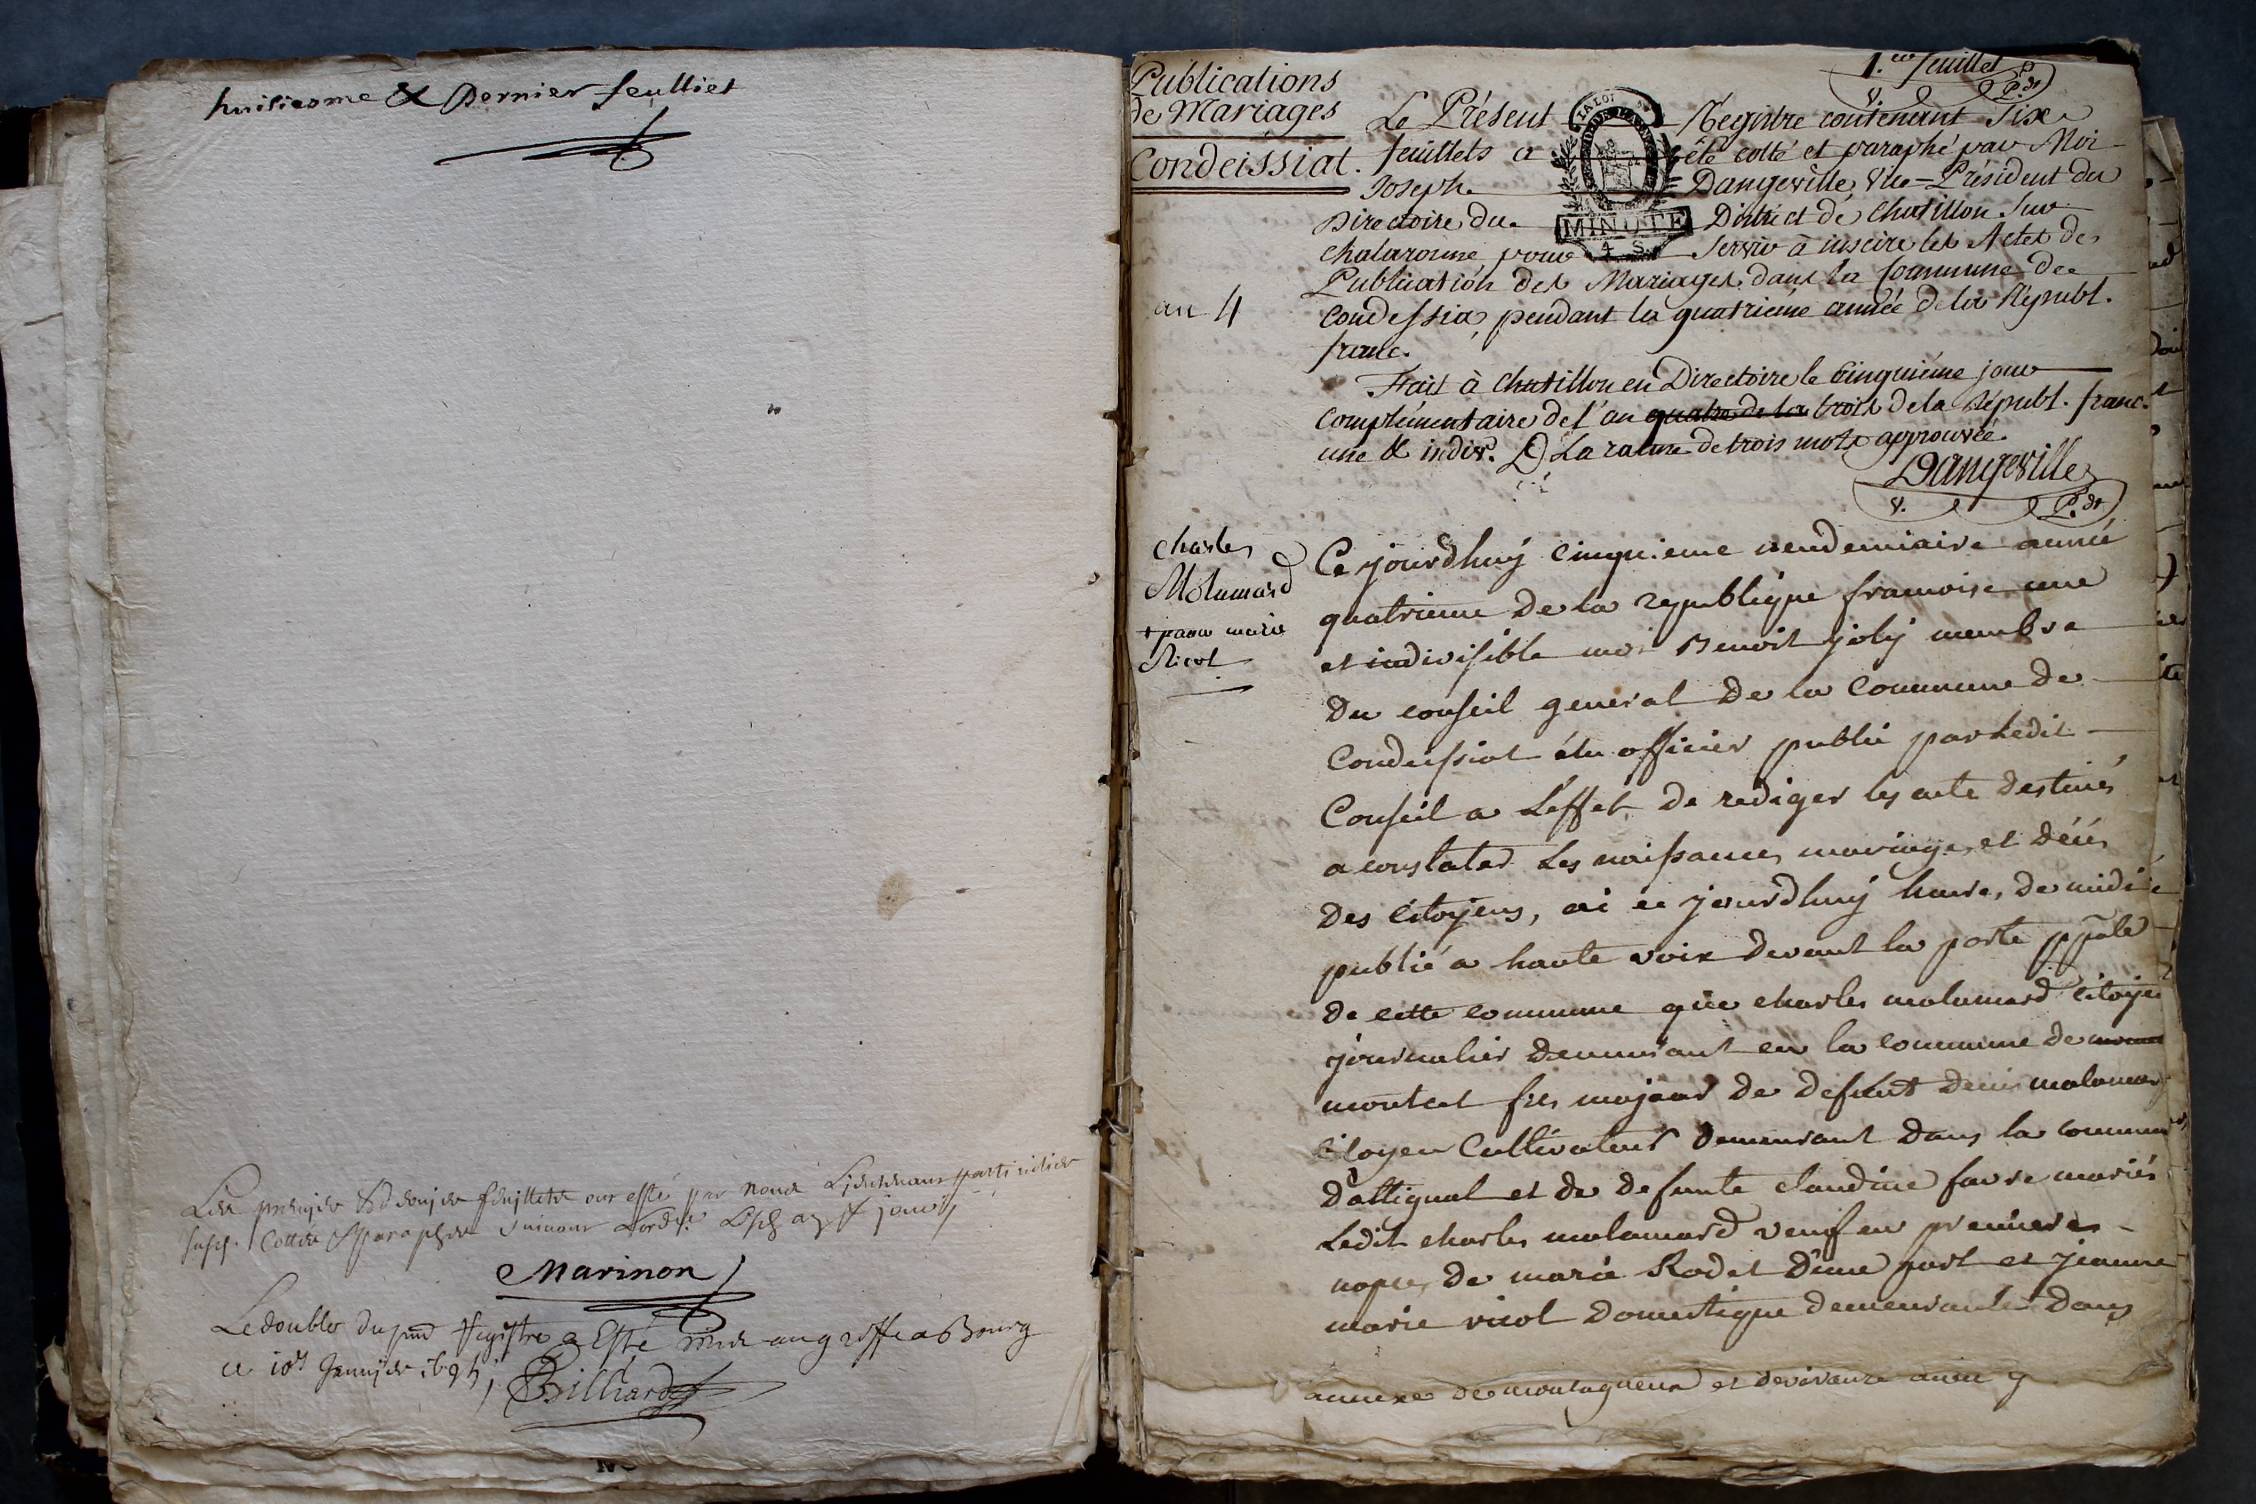 huitiesme & Dernier feulliet
Les premier & dernier feuillets ont esté par Nous Lieutenant particulier
susd. Cottés & paraphés suivant
Marinon
Le double du pnt Registre a Esté mis au greffe a Bourg
ce 10e Janvier 1694
Billiard
Publications
de Mariages
Condeissiat.
an 4
1.er feuillet
V. P.dt
Le Présent Régistre contenant Six
feuillets a été cotté et paraphé par Moi
Joseph Dangeville, Vice-Président du
Directoire du District de Chatillon Sur
Chalaronne pour Servir à inscire les Actes de
Publication des Mariages dans la Commune de
Condessia, pendant la quatrième année de la Républ.
franc.
LA LOI
MINUTE
4 S.
Fait à Chatillon en Directoire le Cinquième jour
Complémentaire de l'an quatre de la trois de la Républ. franc.
une & indiv. La rature de trois mots approuvée.
Dangeville
V. P.dt
Charles
Molumard
+ jeanne marie
Nicol
Ce jourdhuÿ Cinquieme vendemiaire année
quatrieme De la republique francoise une
et indivisible moi Benoit joly membre
Du conseil general De la Commune De
Condeissiat élu officier public par Ledit
Conseil a L'effet De rediger les acte Destinés
a constater Les naissances mariages et Décés
Des Citoyens, ai ce jourdhuÿ heure, De midi
publié a haute voix Devant la porte ppale
De cette commune que charles molumard Citoyen
journalier Demeurant en la commune De
montcet fils majeur De Defunt denis molumard
Citoyen Cultivateur Demeurant Dans la commune
D'attignat et De Defunte Claudine favre mariés
Ledit charles molumard veuf en premieres
nopces De marie Rodet D'une part et jeanne
marie nicol Domestique Demeurante Dans
annexe De montagneux et Devivante